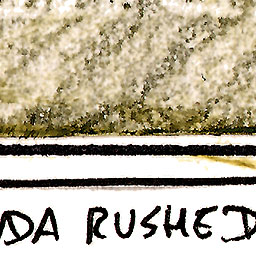 DA RUSHED